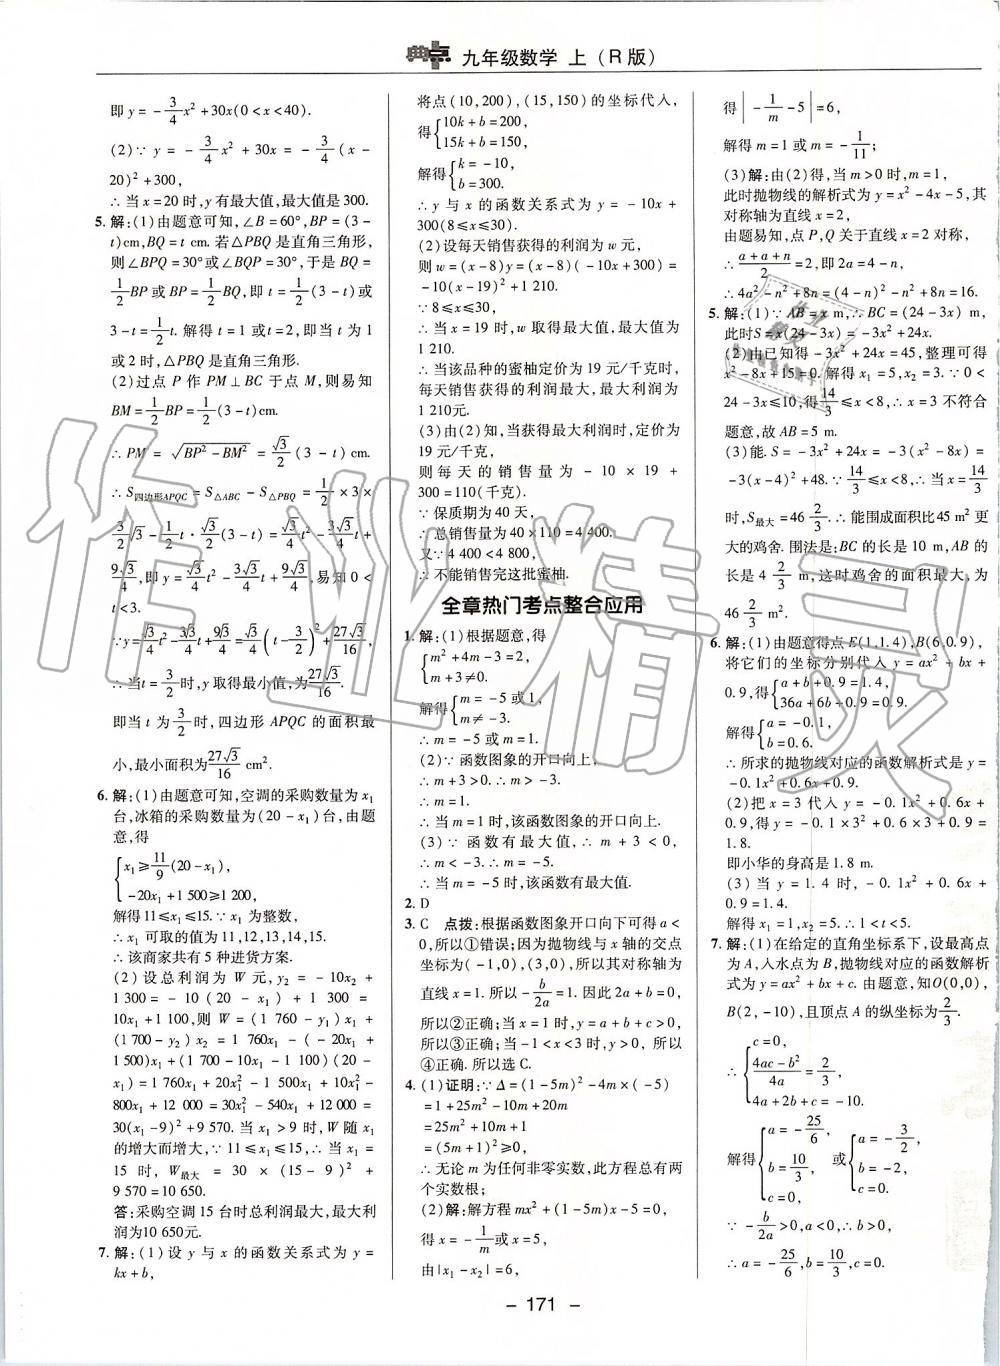 典点 九年级数学 上（R版）
即 y=-3/4x²+30x(0<x<40).
(2)∵ y = -3/4x² + 30x = -3/4(x-
20)²+300,
∴ 当 x=20 时,y 有最大值,最大值是 300.
5. 解:(1)由题意可知,∠B=60°,BP=(3-
t)cm,BQ=t cm. 若△PBQ 是直角三角形,
则∠BPQ=30°或∠BQP=30°,于是 BQ=
1/2BP 或 BP=1/2BQ,即 t=1/2(3-t)或
3-t=1/2t. 解得 t=1 或 t=2,即当 t 为 1
或2 时,△PBQ 是直角三角形.
(2)过点 P 作 PM⊥BC 于点 M,则易知
BM=1/2BP=1/2(3-t)cm.
∴ PM=√(BP²-BM²)=√3/2(3-t)cm.
∴ S四边形APQC=S△ABC-S△PBQ=1/2×3×
3/2√3-1/2·t·√3/2(3-t)=√3/4t²-3√3/4t+
9√3/4,即 y=√3/4t²-3√3/4t+9√3/4,易知 0<
t<3.
∵y=√3/4t²-3√3/4t+9√3/4=√3/4(t-3/2)²+27√3/16,
∴ 当 t=3/2时,y 取得最小值,为27√3/16.
即当 t 为3/2时,四边形 APQC 的面积最
小,最小面积为27√3/16 cm².
6. 解:(1)由题意可知,空调的采购数量为 x₁
台,冰箱的采购数量为(20-x₁)台,由题
意,得
{x₁≥11/9(20-x₁),
-20x₁+1 500≥1 200,
解得11≤x₁≤15.∵x₁ 为整数,
∴ x₁ 可取的值为 11,12,13,14,15.
∴ 该商家共有 5 种进货方案.
(2)设总利润为 W 元,y₂=-10x₂+
1 300=-10(20-x₁)+1 300=
10x₁+1 100,则 W=(1 760-y₁)x₁+
(1 700-y₂)x₂=1 760x₁-(-20x₁+
1 500)x₁+(1 700-10x₁-1 100)(20-
x₁)=1 760x₁+20x₁²-1 500x₁+10x₁²-
800x₁+12 000=30x₁²-540x₁+12 000=
30(x₁-9)²+9 570. 当 x₁>9 时,W 随 x₁
的增大而增大,∵ 11≤x₁≤15,∴ 当 x₁=
15 时,W最大=30×(15-9)²+
9 570=10 650.
答:采购空调 15 台时总利润最大,最大利
润为10 650元.
7. 解:(1)设 y 与 x 的函数关系式为 y=
kx+b,
将点(10,200),(15,150)的坐标代入,
得{10k+b=200,
15k+b=150,
解得{k=-10,
b=300.
∴ y 与 x 的函数关系式为 y=-10x+
300(8≤x≤30).
(2)设每天销售获得的利润为 w 元,
则 w=(x-8)y=(x-8)(-10x+300)=
-10(x-19)²+1 210.
∵ 8≤x≤30,
∴ 当 x=19 时,w 取得最大值,最大值为
1 210.
∴ 当该品种的蜜柚定价为 19 元/千克时,
每天销售获得的利润最大,最大利润为
1 210元.
(3)由(2)知,当获得最大利润时,定价为
19 元/千克,
则每天的销售量为 -10×19+
300=110(千克).
∵ 保质期为 40 天,
∴ 总销售量为 40×110=4 400.
又∵4 400<4 800,
∴ 不能销售完这批蜜柚.
全章热门考点整合应用
1. 解:(1)根据题意,得
{m²+4m-3=2,
m+3≠0.
解得{m=-5或1,
m≠-3.
∴ m=-5 或 m=1.
(2)∵ 函数图象的开口向上,
∴ m+3>0,∴ m>-3.
∴ m=1.
∴ 当 m=1 时,该函数图象的开口向上.
(3)∵ 函数有最大值,∴ m+3<0,
∴ m<-3. ∴ m=-5.
∴ 当 m=-5 时,该函数有最大值.
2. D
3. C 点拨:根据函数图象开口向下可得 a<
0,所以①错误;因为抛物线与 x 轴的交点
坐标为(-1,0),(3,0),所以其对称轴为
直线 x=1. 所以-b/2a=1. 因此 2a+b=0,
所以②正确;当 x=1 时,y=a+b+c>0,
所以③正确;当-1<x<3 时,y>0,所以
④正确. 所以选 C.
4. (1)证明:∵Δ=(1-5m)²-4m×(-5)
=1+25m²-10m+20m
=25m²+10m+1
=(5m+1)²≥0,
∴ 无论 m 为任何非零实数,此方程总有两
个实数根;
(2)解:解方程 mx²+(1-5m)x-5=0,
得 x=-1/m或 x=5,
由|x₁-x₂|=6,
得|-1/m-5|=6,
解得 m=1 或 m=-1/11;
(3)解:由(2)得,当 m>0 时,m=1,
此时抛物线的解析式为 y=x²-4x-5,其
对称轴为直线 x=2,
由题易知,点 P,Q 关于直线 x=2 对称,
∴ (a+a+n)/2=2,即 2a=4-n,
∴ 4a²-n²+8n=(4-n)²-n²+8n=16.
5. 解:(1)∵ AB=x m,∴ BC=(24-3x) m,
此时S=x(24-3x)=-3x²+24x.
(2)由已知得-3x²+24x=45,整理可得
x²-8x+15=0. 解得 x₁=5,x₂=3.∵0<
24-3x≤10,得14/3≤x<8,∴ x=3 不符合
题意,故 AB=5 m.
(3)能. S=-3x²+24x=
-3(x-4)²+48.∵14/3≤x<8,∴ 当x=14/3
时,S最大=46 2/3.∴ 能围成面积比45 m² 更
大的鸡舍. 围法是:BC 的长是 10 m,AB 的
长是 4 2/3 m,这时鸡舍的面积最大,为
46 2/3 m².
6. 解:(1)由题意得点 E(1,1.4),B(6,0.9),
将它们的坐标分别代入 y=ax²+bx+
0.9,得{a+b+0.9=1.4,
36a+6b+0.9=0.9.
解得{a=-0.1,
b=0.6.
∴ 所求的抛物线对应的函数解析式是 y=
-0.1x²+0.6x+0.9.
(2)把 x=3 代入 y=-0.1x²+0.6x+
0.9,得 y=-0.1×3²+0.6×3+0.9=
1.8.
即小华的身高是 1.8 m.
(3)当 y=1.4 时,-0.1x²+0.6x+
0.9=1.4.
解得 x₁=1,x₂=5. ∴ 1<t<5.
7. 解:(1)在给定的直角坐标系下,设最高点
为 A,入水点为 B,抛物线对应的函数解析
式为 y=ax²+bx+c. 由题意,知O(0,0),
B(2,-10),且顶点 A 的纵坐标为2/3.
∴{c=0,
(4ac-b²)/4a=2/3,
4a+2b+c=-10.
解得{a=-25/6,
b=10/3,
c=0, 或{a=-3/2,
b=-2,
c=0,
∵-b/2a>0,a<0,∴b>0,
∴ a=-25/6,b=10/3,c=0.
- 171 -
作业精灵